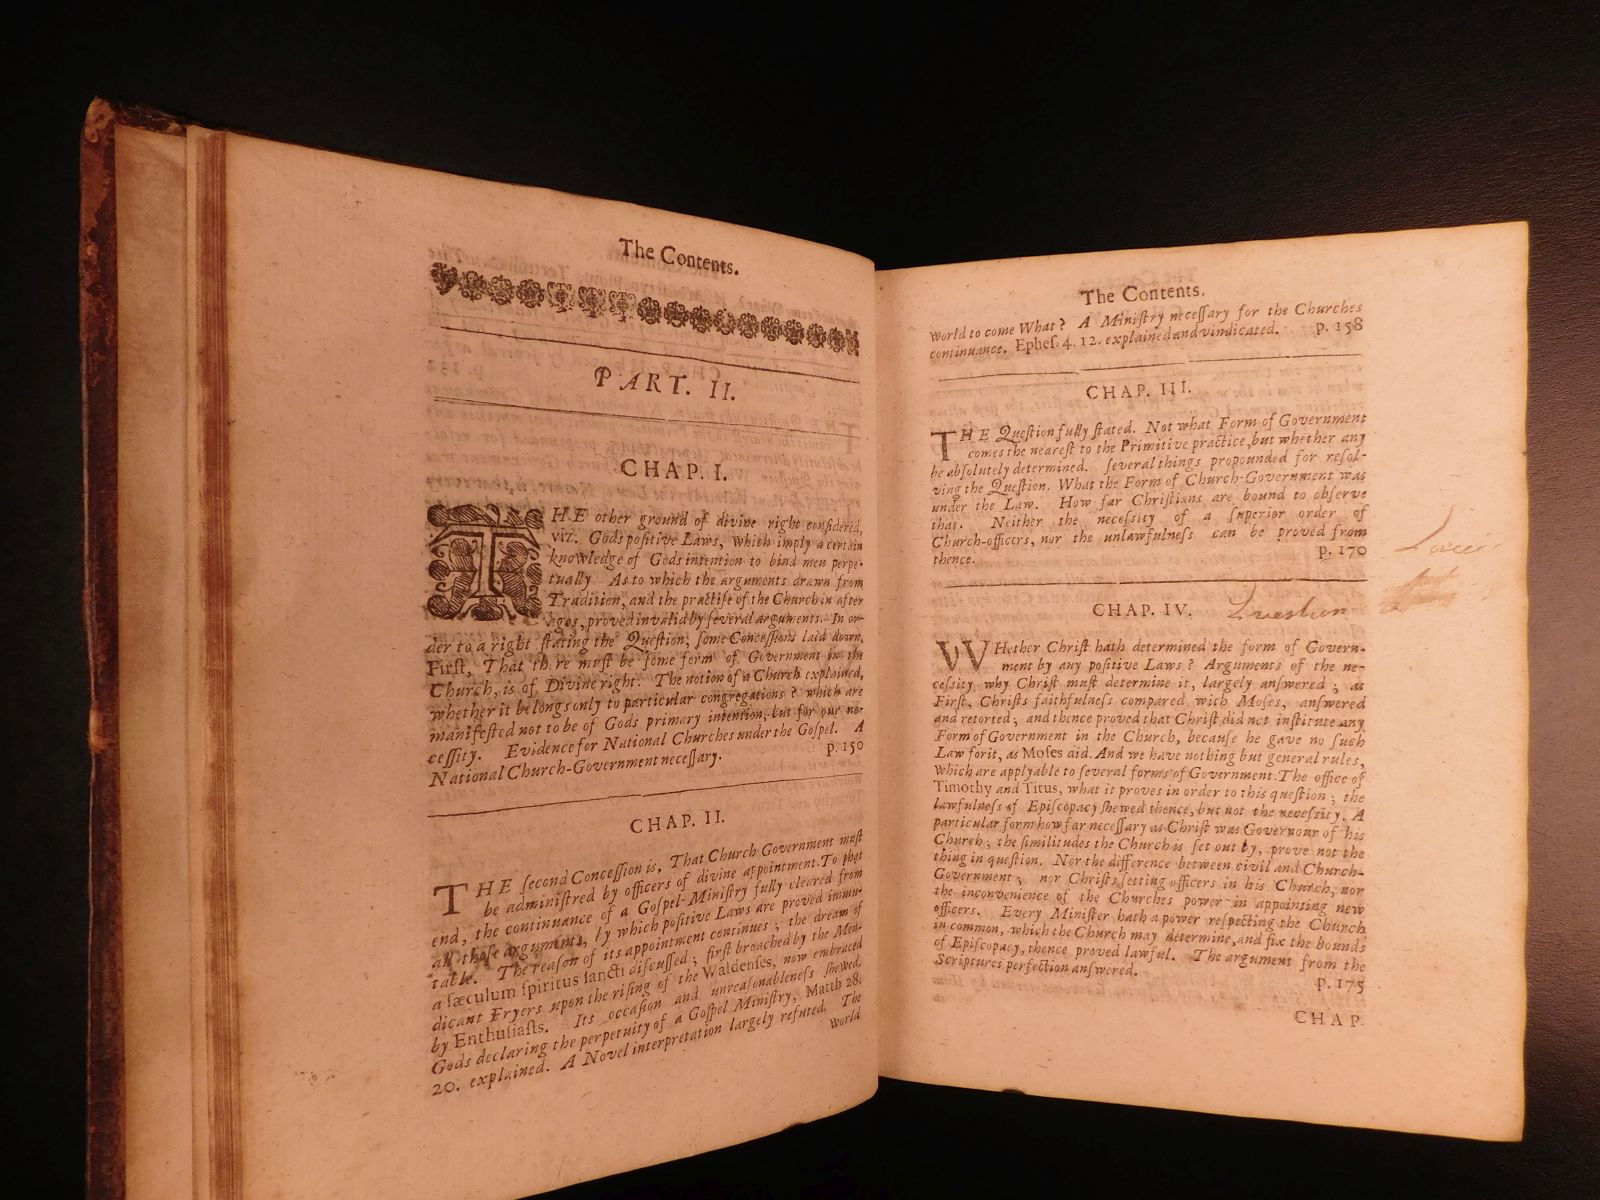 The Contents.
PART. II.
CHAP. I.
THE other ground of divine right considered,
viz. Gods positive Laws, which imply a certain
knowledge of Gods intention to bind men perpe-
tually. As to which the arguments drawn from
Tradition, and the practise of the Church in after
ages, proved invalid by several arguments. In or-
der to a right stating the Question, some Concessions laid down.
First, That there must be some form of Government in the
Church, is of Divine right. The notion of a Church explained,
whether it belongs only to particular congregations? which are
manifested not to be of Gods primary intention, but for our ne-
cessity. Evidence for National Churches under the Gospel. A
National Church-Government necessary. p. 150
CHAP. II.
THE second Concession is, That Church Government must
be administred by officers of divine appointment. To that
end, the continuance of a Gospel-Ministry fully cleared from
all those arguments, by which positive Laws are proved immu-
table. The reason of its appointment continues; the dream of
a sæculum spiritus sancti discussed; first broached by the Men-
dicant Fryers upon the rising of the Waldenses, now embraced
by Enthusiasts. Its occasion and unreasonableness shewed.
Gods declaring the perpetuity of a Gospel Ministry, Matth 28.
20. explained. A Novel interpretation largely refuted. The
world
The Contents.
world to come What? A Ministry necessary for the Churches
continuance. Ephes. 4. 12. explained and vindicated. p. 158
CHAP. III.
THE Question fully stated. Not what Form of Government
comes the nearest to the Primitive practice, but whether any
be absolutely determined. Several things propounded for resol-
ving the Question. What the Form of Church-Government was
under the Law. How far Christians are bound to observe
that. Neither the necessity of a superior order of
Church-officers, nor the unlawfulness can be proved from
thence. p. 170
CHAP. IV. Question
WHether Christ hath determined the form of Govern-
ment by any positive Laws? Arguments of the ne-
cessity why Christ must determine it, largely answered; as
First, Christs faithfulness compared with Moses, answered
and retorted; and thence proved that Christ did not institute any
Form of Government in the Church, because he gave no such
Law for it, as Moses did. And we have nothing but general rules,
which are applyable to several forms of Government. The office of
Timothy and Titus, what it proves in order to this question; the
lawfulness of Episcopacy shewed thence, but not the necessity. A
particular form how far necessary as Christ was Governour of his
Church; the similitudes the Church is set out by, prove not the
thing in question. Nor the difference between civil and Church-
Government; nor Christs setting officers in his Church, nor
the inconvenience of the Churches power in appointing new
officers. Every Minister hath a power respecting the Church
in common, which the Church may determine, and fix the bounds
of Episcopacy, thence proved lawful. The argument from the
Scriptures perfection answered. p. 175
CHAP.